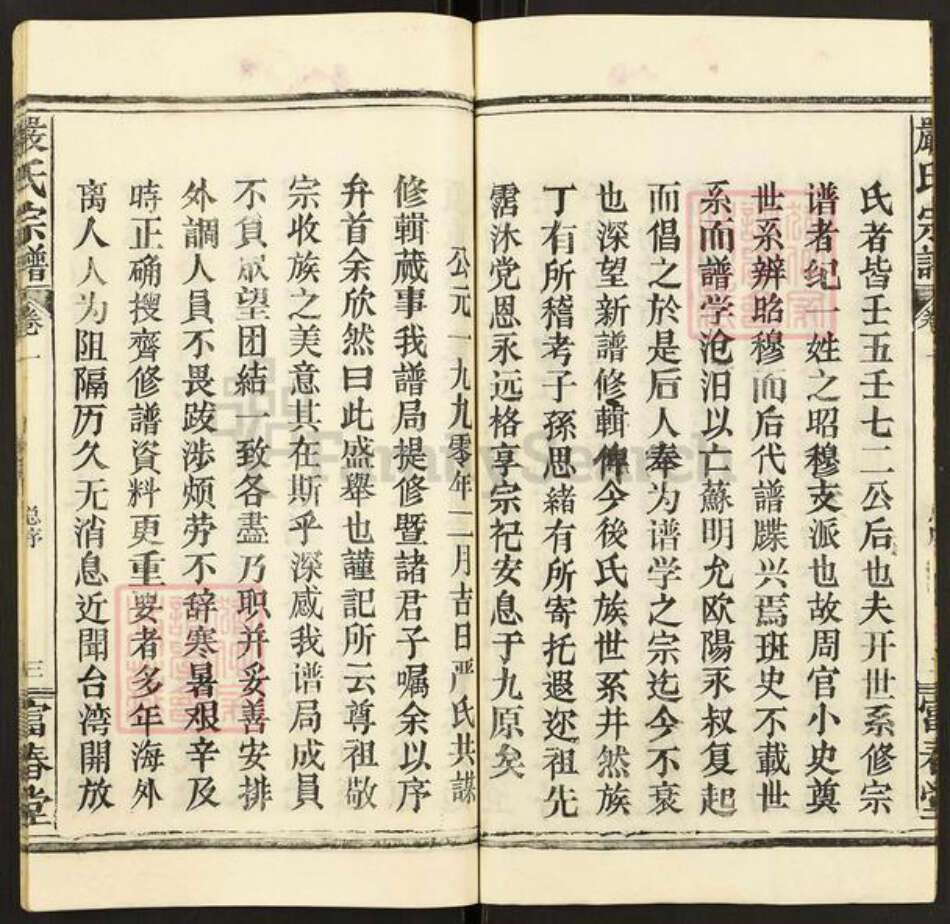 氏者皆壬五壬七二公后也夫开世系修宗
谱者纪一姓之昭穆支派也故周官小史奠
世系辨昭穆而后代譜牒兴焉班史不載世
系而譜学沧汨以亡蘇明允欧陽永叔复起
而倡之於是后人奉为谱学之宗迄今不衰
也深望新譜修輯俾今後氏族世系井然族
丁有所稽考子孫思緒有所寄托遐迩祖先
霑沐党恩永远格享宗祀安息于九原矣
公元一九九零年二月吉日严氏共谋
修輯蕆事我譜局提修暨諸君子嘱余以序
弁首余欣然曰此盛舉也謹記所云尊祖敬
宗收族之美意其在斯乎深感我谱局成員
不負眾望团結一致各盡乃职并妥善安排
外調人員不畏跋涉烦劳不辞寒暑艰辛及
時正确搜齊修譜資料更重要者多年海外
离人人为阻隔历久无消息近聞台湾開放
嚴氏宗譜
卷一
总序
三
富春堂
FamilySearch